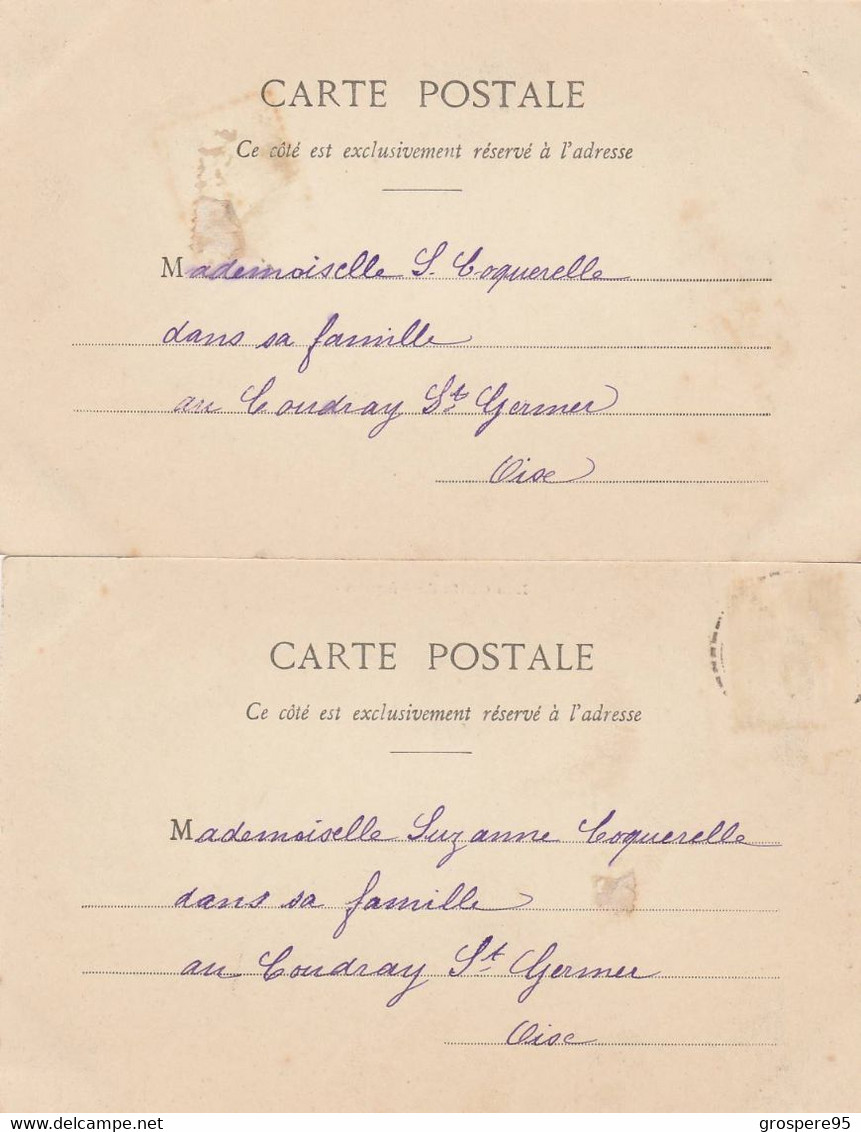 CARTE POSTALE
Ce côté est exclusivement réservé à l'adresse
Mademoiselle S. Coquerelle
dans sa famille
au Coudray St Germer
Oise
CARTE POSTALE
Ce côté est exclusivement réservé à l'adresse
Mademoiselle Suzanne Coquerelle
dans sa famille
au Coudray St Germer
Oise
delcampe.net
grospere95